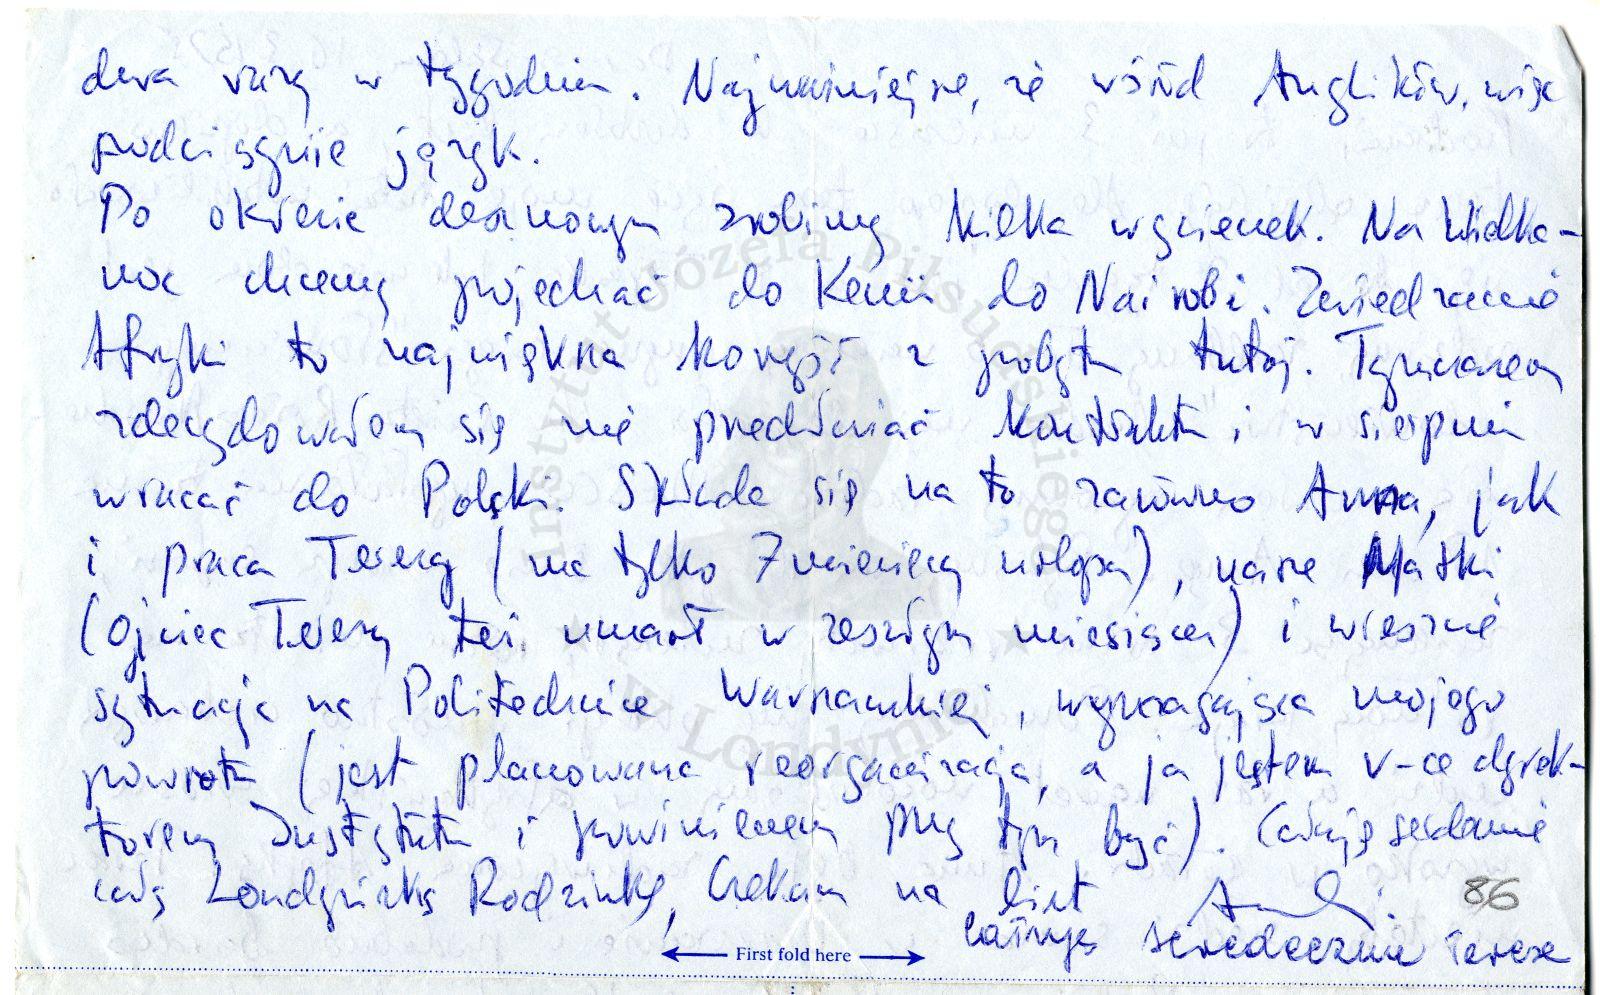 dwa razy w tygodniu. Najważniejsze, że wśród Anglików, więc
podciągnie język.
Po okresie deszczowym zrobimy kilka wycieczek. Na Wielka-
noc chcemy pojechać do Kenii do Nairobi. Zwiedzanie
Afryki to największa korzyść z pobytu tutaj. Tymczasem
zdecydowałem się nie przedłużać kontraktu i w sierpniu
wracać do Polski. Składa się na to zarówno Anna, jak
i praca Teresy (ma tylko 7 miesięcy urlopu), nasze Matki
(Ojciec Teresy też umarł w zeszłym miesiącu) i wreszcie
sytuacja na Politechnice Warszawskiej, wymagająca mojego
powrotu (jest planowana reorganizacja, a ja jestem v-ce dyrek-
torem Instytutu i powinienem przy tym być). Całuję serdecznie
całą Londyńską Rodzinkę, Czekam na list
86
całuję serdecznie Teresa
First fold here
Instytut Józefa Piłsudskiego
w Londynie